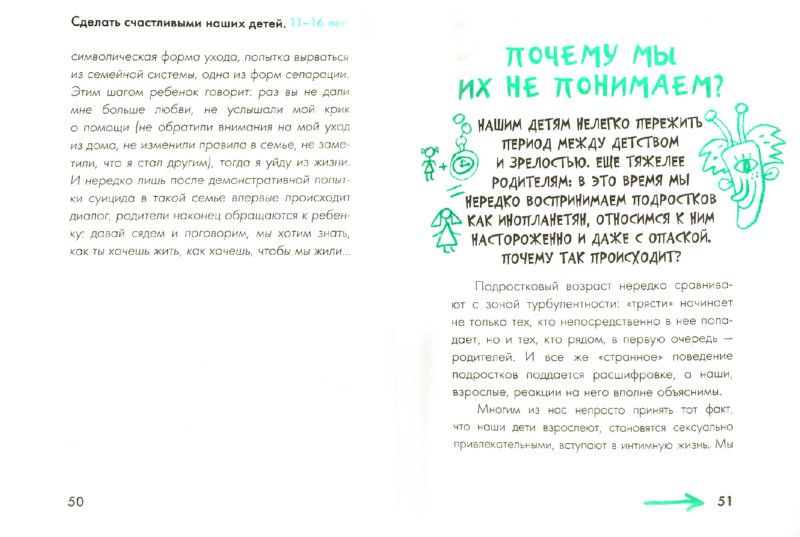 Сделать счастливыми наших детей. 11–16 лет
символическая форма ухода, попытка вырваться
из семейной системы, одна из форм сепарации.
Этим шагом ребенок говорит: раз вы не дали
мне больше любви, не услышали мой крик
о помощи (не обратили внимания на мой уход
из дома, не изменили правила в семье, не заме-
тили, что я стал другим), тогда я уйду из жизни.
И нередко лишь после демонстративной попыт-
ки суицида в такой семье впервые происходит
диалог, родители наконец обращаются к ребен-
ку: давай сядем и поговорим, мы хотим знать,
как ты хочешь жить, как хочешь, чтобы мы жили...
50
ПОЧЕМУ МЫ
ИХ НЕ ПОНИМАЕМ?
НАШИМ ДЕТЯМ НЕЛЕГКО ПЕРЕЖИТЬ
ПЕРИОД МЕЖДУ ДЕТСТВОМ
И ЗРЕЛОСТЬЮ. ЕЩЕ ТЯЖЕЛЕЕ
РОДИТЕЛЯМ: В ЭТО ВРЕМЯ МЫ
НЕРЕДКО ВОСПРИНИМАЕМ ПОДРОСТКОВ
КАК ИНОПЛАНЕТЯН, ОТНОСИМСЯ К НИМ
НАСТОРОЖЕННО И ДАЖЕ С ОПАСКОЙ.
ПОЧЕМУ ТАК ПРОИСХОДИТ?
Подростковый возраст нередко сравнива-
ют с зоной турбулентности: «трясти» начинает
не только тех, кто непосредственно в нее попа-
дает, но и тех, кто рядом, в первую очередь —
родителей. И все же «странное» поведение
подростков поддается расшифровке, а наши,
взрослые, реакции на него вполне объяснимы.
Многим из нас непросто принять тот факт,
что наши дети взрослеют, становятся сексуально
привлекательными, вступают в интимную жизнь. Мы
51